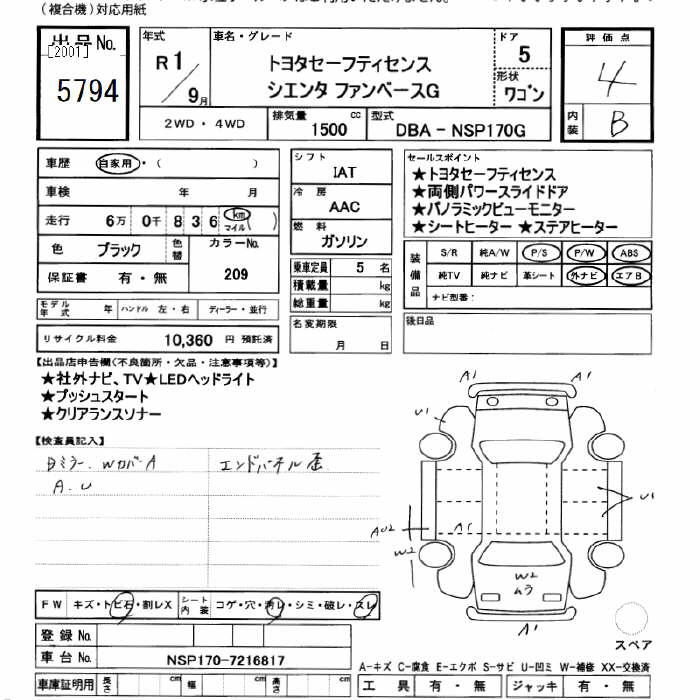 (複合機)対応用紙
出品No.
[2001]
5794
年式
R1/9月
車名・グレード
トヨタセーフティセンス
シエンタ ファンベースG
ドア
5
形状
ワゴン
評価点
4
内装
B
2WD・4WD
排気量
1500
cc
型式
DBA - NSP170G
車歴
自家用・( )
車検
年 月
走行
6万 0千 8 3 6 km マイル ( )
色
ブラック
色替
カラーNo.
209
保証書
有・無
シフト
IAT
冷房
AAC
燃料
ガソリン
乗車定員
5 名
積載量
kg
総重量
kg
セールスポイント
★トヨタセーフティセンス
★両側パワースライドドア
★パノラミックビューモニター
★シートヒーター ★ステアヒーター
装備品
S/R 純A/W P/S P/W ABS
純TV 純ナビ 革シート 外ナビ エアB
ナビ型番:
モデル年式
年
ハンドル 左・右
ディーラー・並行
リサイクル料金
10,360 円 預託済
名変期限
月 日
後日品
【出品店申告欄(不良箇所・欠品・注意事項等)】
★社外ナビ、TV★LEDヘッドライト
★プッシュスタート
★クリアランスソナー
【検査員記入】
Wカバー A
エンドパネル歪
A.U
A1
A1
U1
U1
AU2
A1
W2
W2
ムラ
A1
スペア
FW
キズ・トビ石・割レX
シート内装
コゲ・穴・汚レ・シミ・破レ・スレ
登録No.
車台No.
NSP170-7216817
車庫証明用
長さ
cm
幅
cm
高さ
cm
A-キズ C-腐食 E-エクボ S-サビ U-凹ミ W-補修 XX-交換済
工具
有・無
ジャッキ
有・無